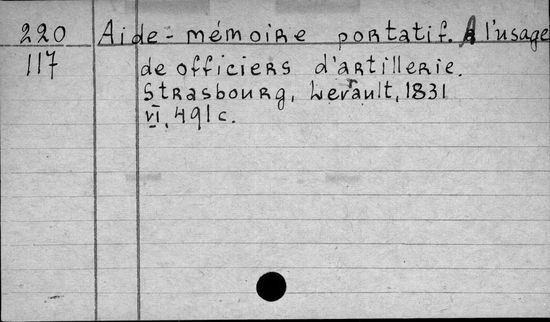 220 Aide-mémoire portatif. A l'usage
117 de officiers d'artillerie.
Strasbourg, Levrault, 1831
VI, 491 c.